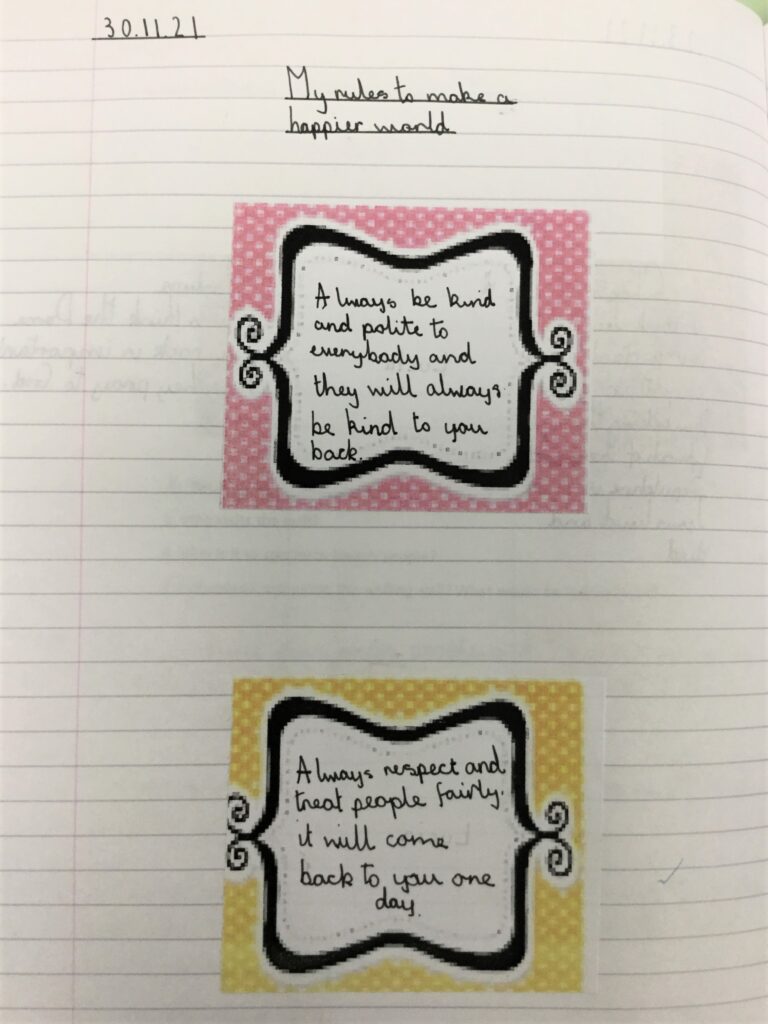 30.11.21
My rules to make a
happier world
Always be kind
and polite to
everybody and
they will always
be kind to you
back.
Always respect and
treat people fairly.
it will come
back to you one
day.